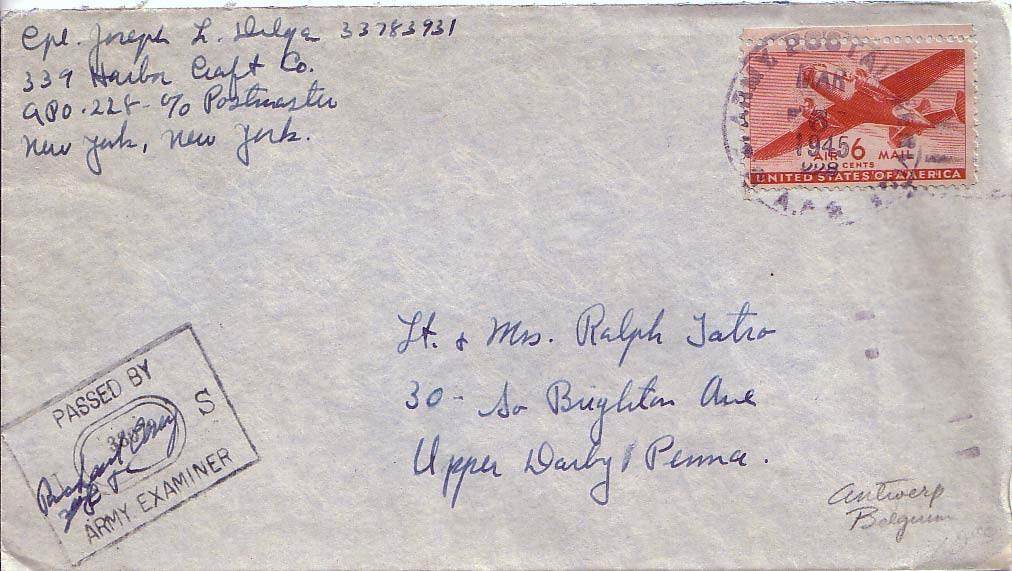 Cpl. Joseph L. Dilga 33783931
339 Harbor Craft Co.
APO. 228 - c/o Postmaster
New York, New York.
ARMY POSTAL
MAR
1945
228
A.P.O.
AIR 6 MAIL
CENTS
UNITED STATES OF AMERICA
Lt. & Mrs. Ralph Tatro
30 - So Brighton Ave
Upper Darby, Penna.
PASSED BY
S
ARMY EXAMINER
Antwerp
Belgium